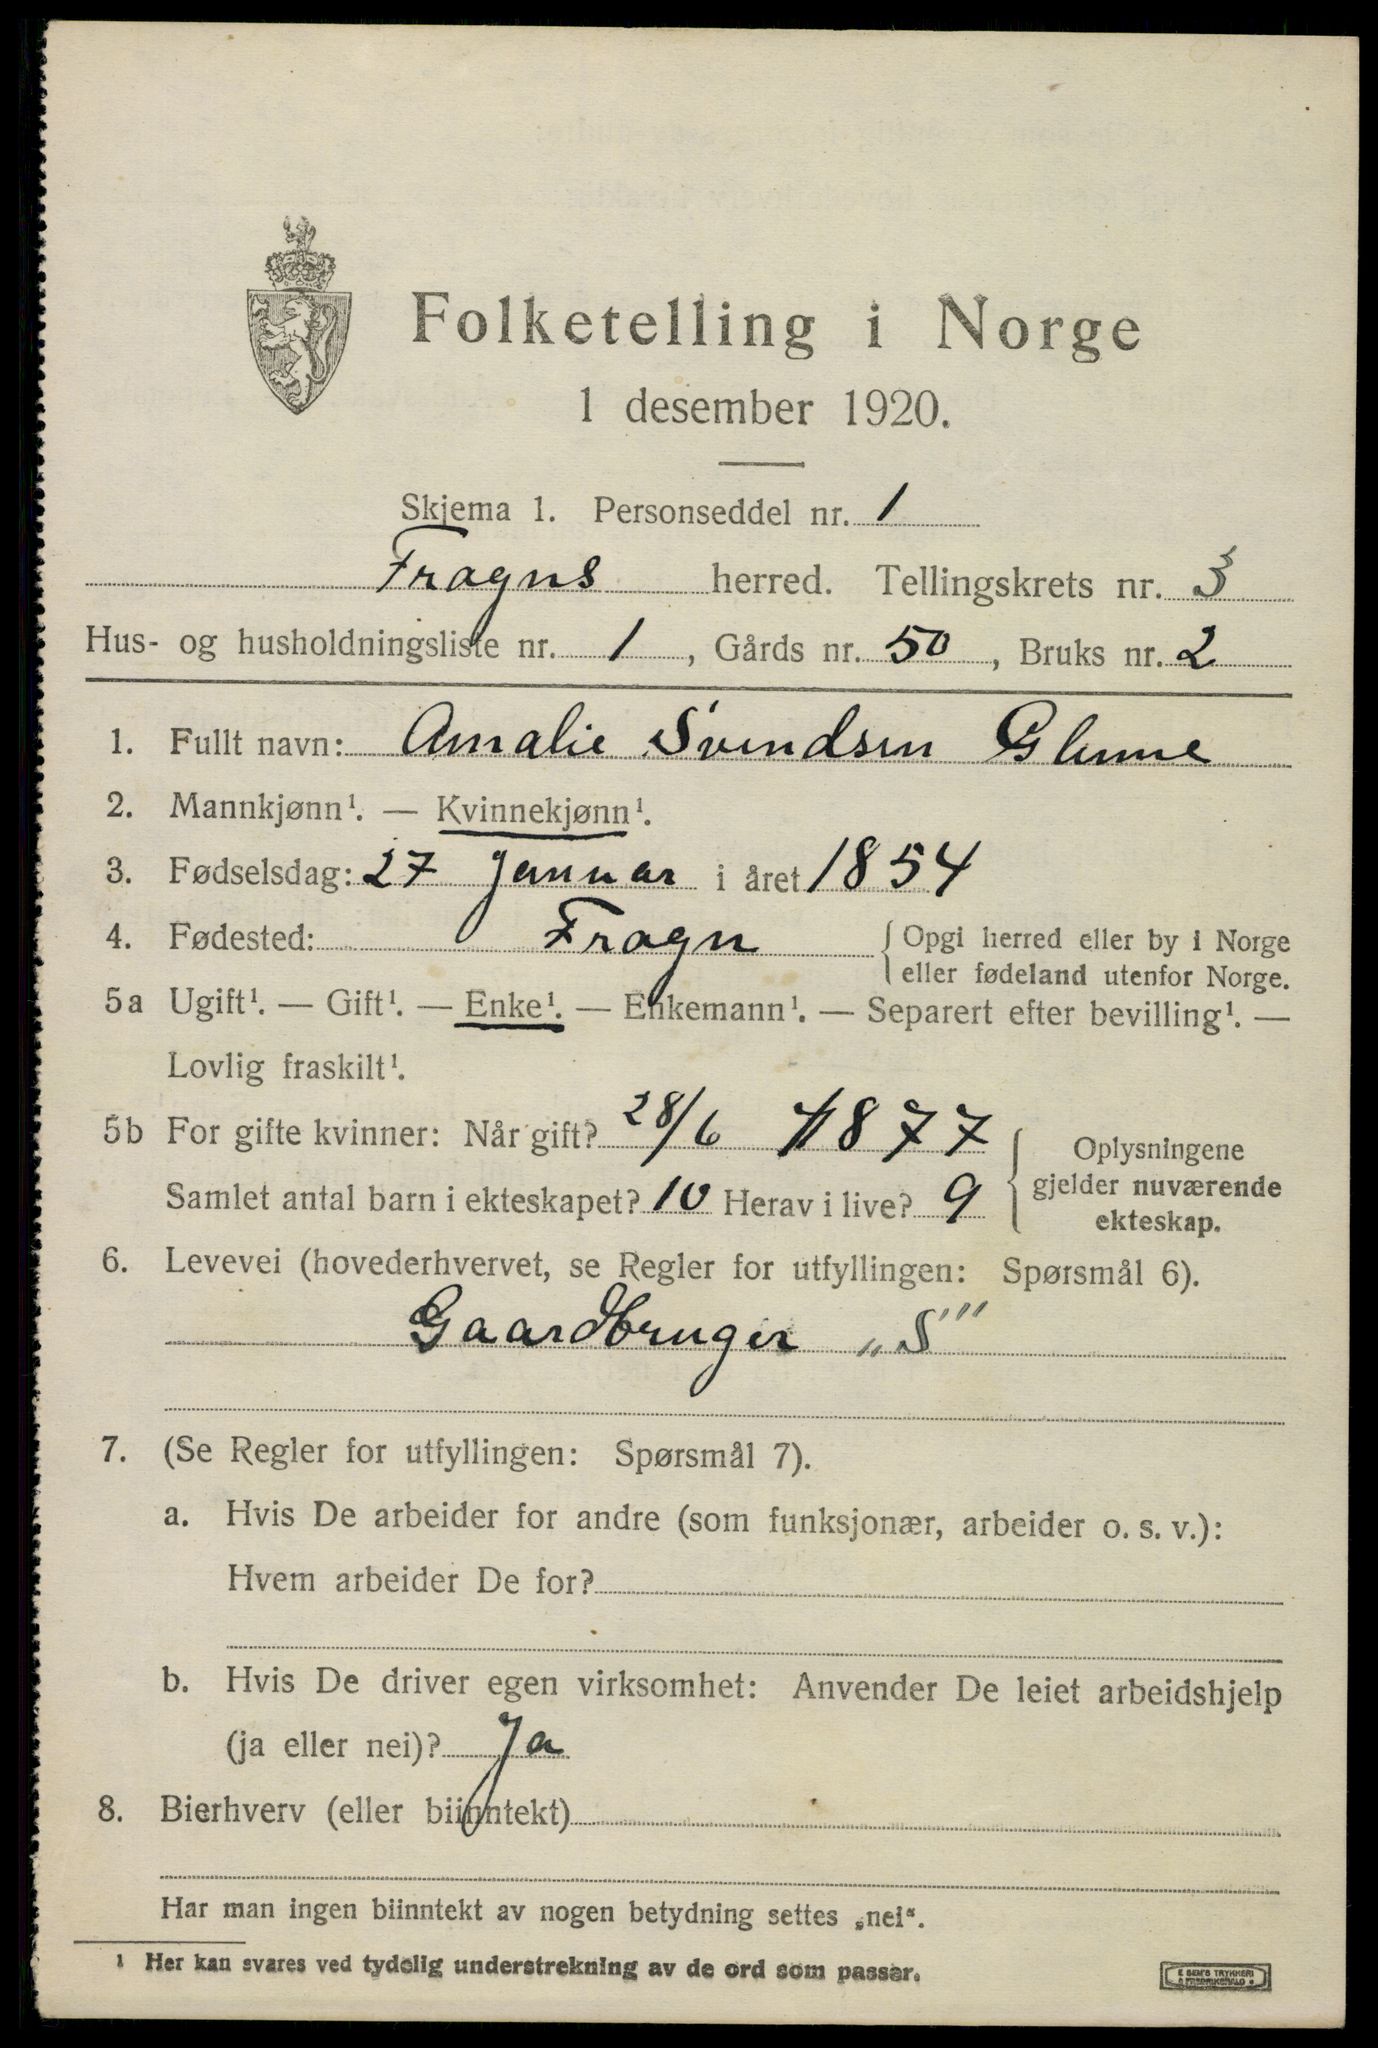 Folketelling i Norge
1 desember 1920.
Skjema 1. Personseddel nr. 1
Frogns herred. Tellingskrets nr. 3
Hus- og husholdningsliste nr. 1, Gårds nr. 50, Bruks nr. 2
1. Fullt navn: Amalie Svendsen Glenne
2. Mannkjønn¹. — Kvinnekjønn¹.
3. Fødselsdag: 27 Januar i året 1854
4. Fødested: Frogn { Opgi herred eller by i Norge
eller fødeland utenfor Norge.
5a Ugift¹. — Gift¹. — Enke¹. — Enkemann¹. — Separert efter bevilling¹. —
Lovlig fraskilt¹.
5b For gifte kvinner: Når gift? 28/6 1877
Samlet antal barn i ekteskapet? 10 Herav i live? 9
{ Oplysningene
gjelder nuværende
ekteskap.
6. Levevei (hovederhvervet, se Regler for utfyllingen: Spørsmål 6).
Gaardbruger „S"
7. (Se Regler for utfyllingen: Spørsmål 7).
a. Hvis De arbeider for andre (som funksjonær, arbeider o. s. v.):
Hvem arbeider De for?
b. Hvis De driver egen virksomhet: Anvender De leiet arbeidshjelp
(ja eller nei)? Ja
8. Bierhverv (eller biinntekt)
Har man ingen biinntekt av nogen betydning settes „nei“.
¹ Her kan svares ved tydelig understrekning av de ord som passer.
E SEM'S TRYKKERI
FREDRIKSHALD